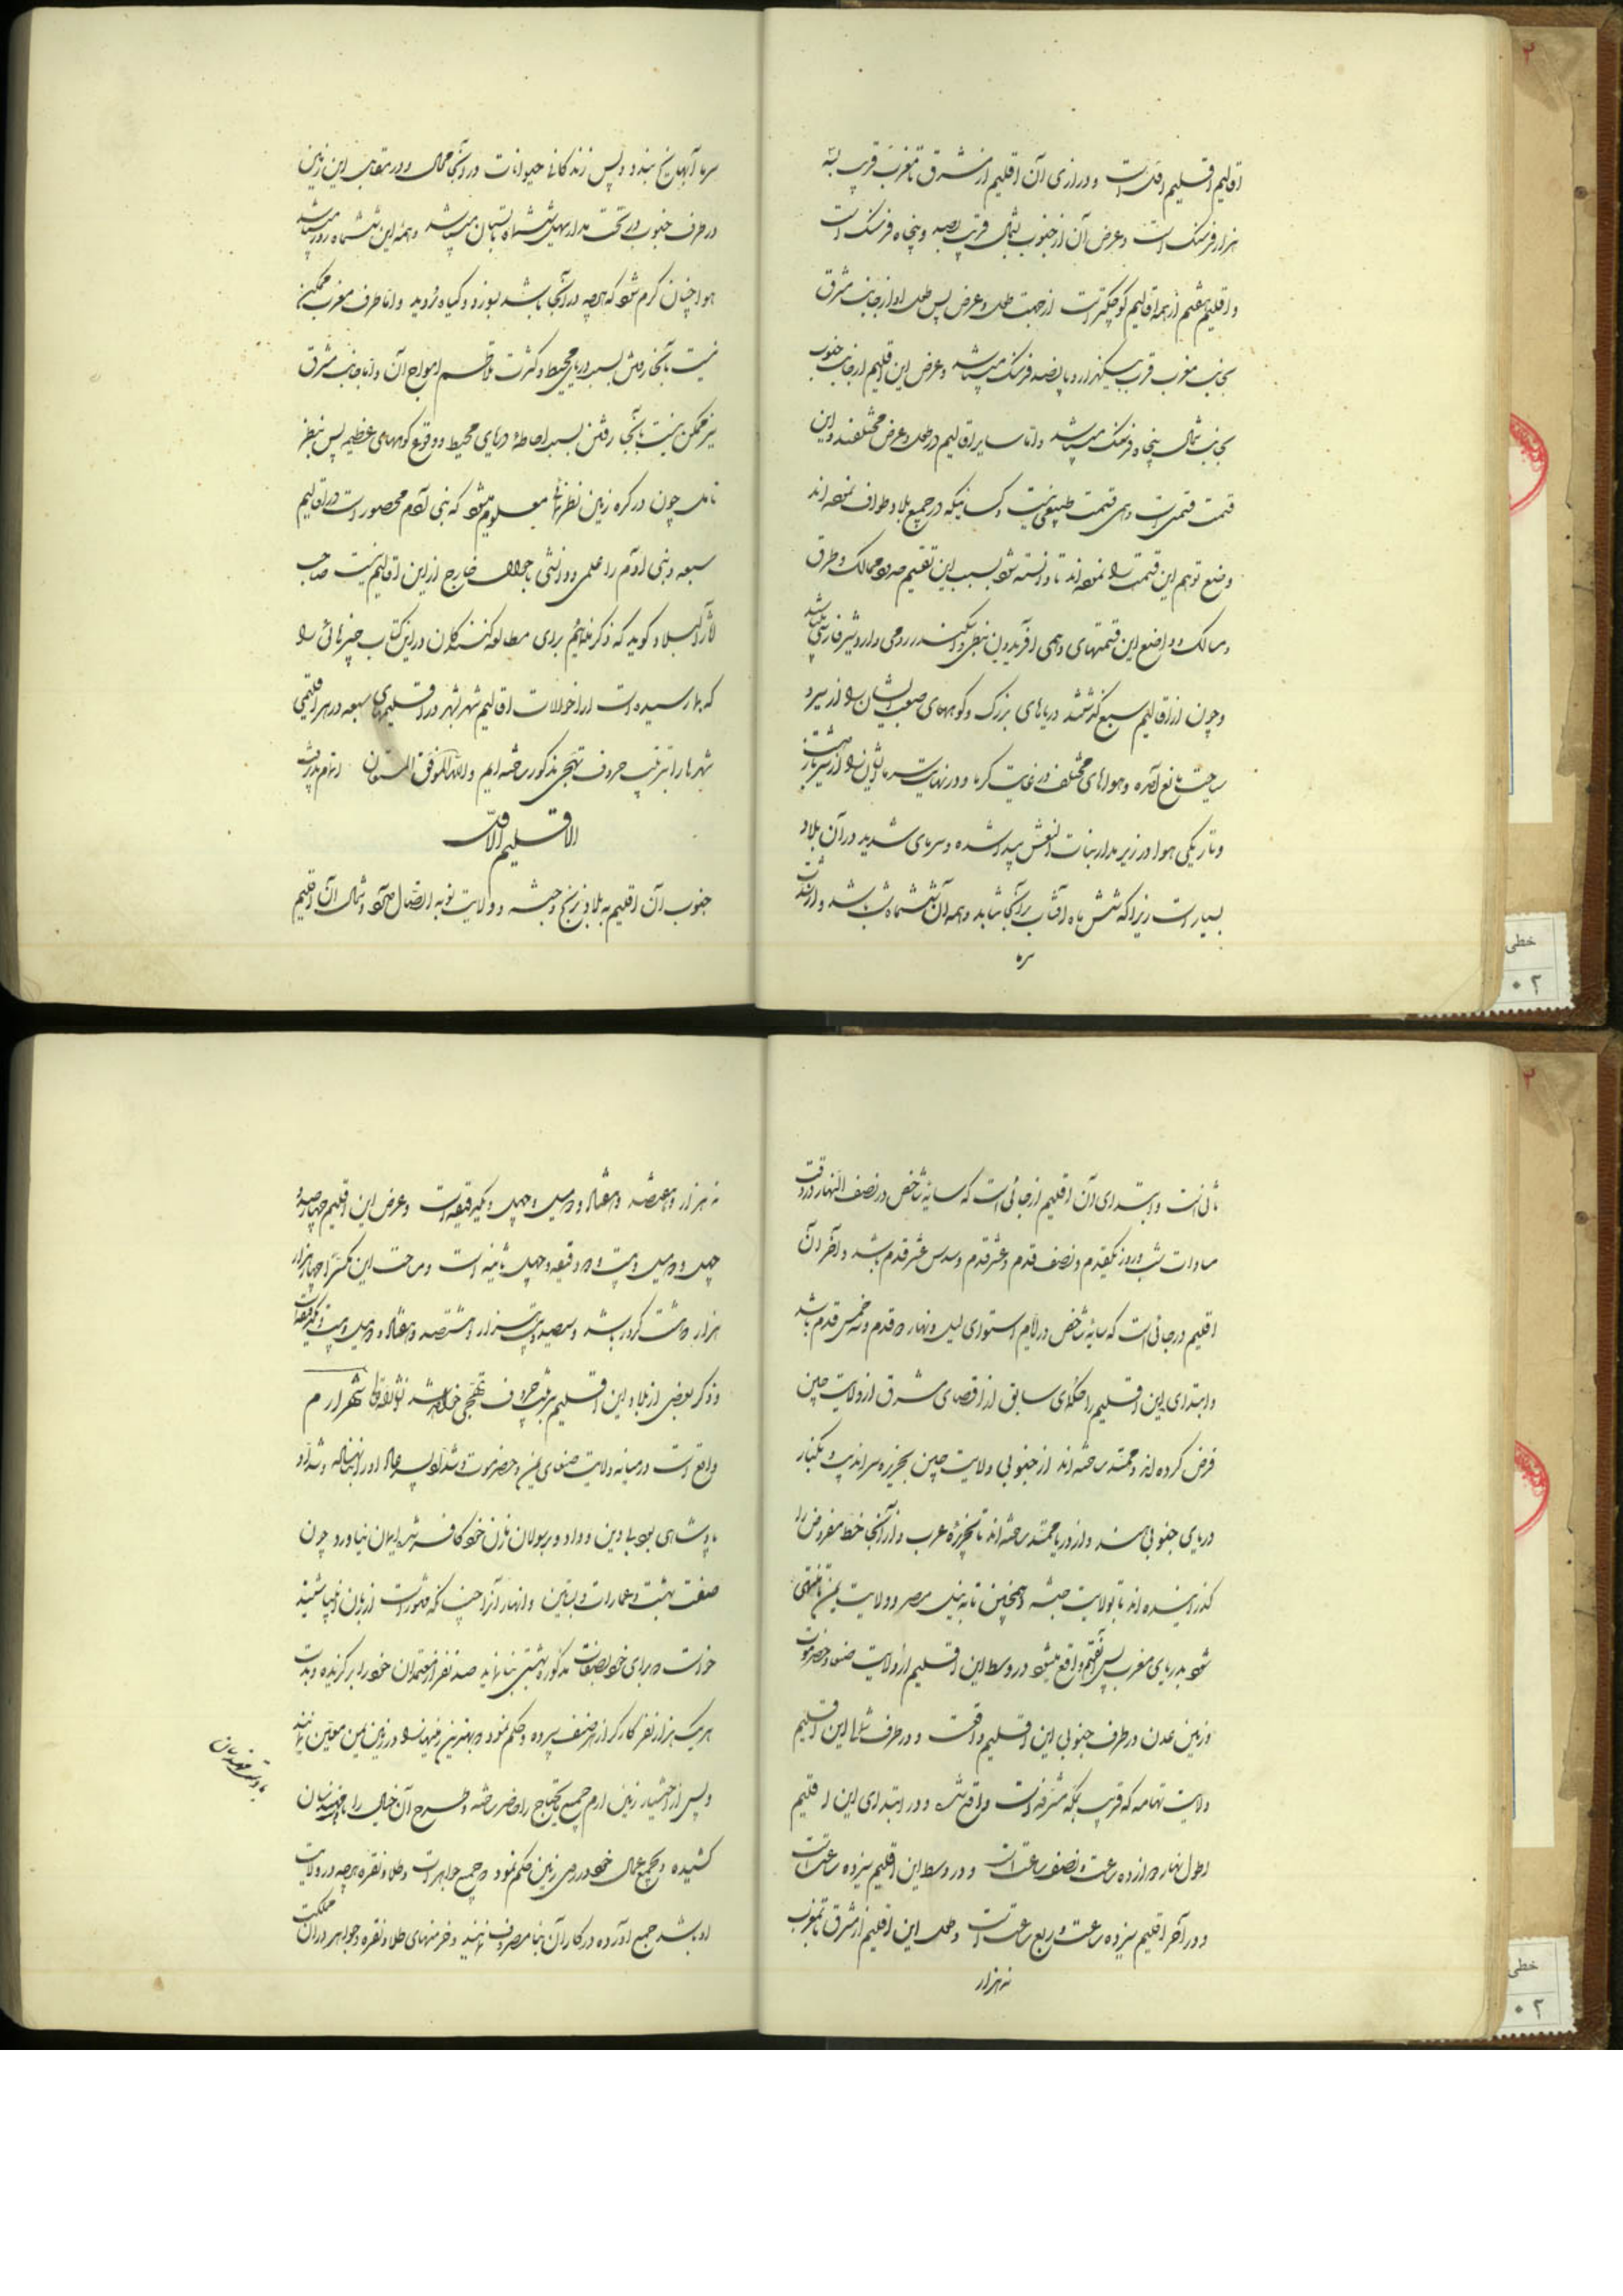 اقالیم اقلیم اول است و درازی آن اقلیم از مشرق تا مغرب قریب بسه
هزار فرسنک است و عرض آن از جنوب بشمال قریب بصد و پنجاه فرسنک است
و اقلیم هفتم از همه اقالیم کوچکتر است از جهت طول و عرض پس طول او از جانب مشرق
بجانب مغرب قریب بیکهزار و پانصد فرسنک میباشد و عرض این اقلیم از جانب جنوب
بجانب شمال پنجاه فرسنک میباشد و اما سایر اقالیم در طول و عرض مختلفند و این
قسمت قسمتی است وهمی قسمت طبیعی نیست و کسانیکه در جمیع بلاد طواف نموده اند
وضع توهم این قسمت را نموده اند تا دانسته شود بسبب این تقسیم حدود ممالک و طرق
و مسالک و واضع این قسمتهای وهمی افریدون نبطی و اسکندر رومی و اردشیر فارسی میباشد
و چون از اقالیم سبع گذشتند دریاهای بزرک و کوههای صعب ایشان را از سیر و
سیاحت مانع آمده و هواهای مختلف در غایت کرما و در نهایت سرما ایشان را از سیر باز داشت
و تاریکی هوا در زیر مدار بنات النعش پیدا شده و سرمای شدید در آن بلاد
بسیار است زیرا که شش ماه آفتاب بر آنجا نتابد و همه آن ششماه شب باشد و از شدت
سرما آبها یخ بندد و پس زندکانی حیوانات در آنجا محال و در مقابل این زمین
در طرف جنوب در تحت مدار سهیل ششماه تابستان میباشد و همه این ششماه روز میباشد
هوا چنان کرم شود که هر چه در آنجا باشد بسوزد و کیاه نروید و اما طرف مغرب ممکن
نیست بآنجا رفتن بسبب دریای محیط و کثرت تلاطم امواج آن و اما جانب مشرق
نیز ممکن نیست بآنجا رفتن بسبب احاطه دریای محیط و وقوع کوههای عظیم پس بنظر
تامل چون در کره زمین نظر شد معلوم میشود که بنی آدم محصور است در اقالیم
سبعه و بنی آدم را علمی و دانشی باحوال خارج از این اقالیم نیست صاحب
آثار البلاد کوید که ذکر نمائیم برای مطالعه کنندکان در این کتاب چیزهائی را
که بما رسیده است از احوالات اقالیم شهر شهر در اقلیمهای سبعه در هر اقلیمی
شهرها را بترتیب حروف تهجی مذکور ساخته ایم و الله الموفق المستعان
الاقلیم الاول
جنوب آن اقلیم به بلاد زنج و حبشه و ولایت نوبه اتصال دارد و شمال آن اقلیم
ثانی است و ابتدای آن اقلیم از جائی است که سایه شاخص در نصف النهار در وقت
مساوات شب و روز یکقدم و نصف قدم و عشر قدم و سدس عشر قدم باشد و آخر آن
اقلیم در جائی است که سایه شاخص در ایام استوای لیل و نهار دو قدم و سه خمس قدم باشد
و ابتدای این اقلیم را حکمای سابق از اقصای مشرق از ولایت چین
فرض کرده اند و ممتد ساخته اند از جنوبی ولایت چین بجزیره سراندیب و بکنار
دریای جنوبی هند و از دریا ممتد ساخته اند تا بجزیره عرب و از آنجا خط مفروض را
کذرانیده اند تا بولایت حبشه و همچنین تا به نیل مصر و ولایت یمن تا منتهی
شود بدریای مغرب پس واقع میشود در وسط این اقلیم از ولایت صنعا و حضرموت
و زمین عدن در طرف جنوبی این اقلیم واقعست و در طرف شمال این اقلیم
ولایت تهامه که قریب بمکه مشرفه است واقع شده و در ابتدای این اقلیم
اطول نهار دوازده ساعت و نصف ساعت است و در وسط این اقلیم سیزده ساعت است
و در آخر اقلیم سیزده ساعت و ربع ساعت است و طول این اقلیم از مشرق تا مغرب
نه هزار
نه هزار و هفتصد و هفتاد و دو میل و چهل و یک دقیقه است و عرض این اقلیم چهار صد و
چهل و دو میل و بیست و دو دقیقه و چهل ثانیه است و مساحت این مکسرا چهار هزار
هزار و هشت کرور باشد و سیصد و بیست هزار و هشتصد و هفتاد و دو میل و بیست و یک دقیقه است
و ذکر بعضی از بلاد این اقلیم بترتیب حروف تهجی خواهد شد شهر ارم
واقع است در میانه ولایت صنعای یمن و حضرموت و شداد بن عاد او را بنا نهاده و شداد
پادشاهی بود بیدین و داد و برسولان زمان خود کافر شد ایمان نیاورد و چون
صفت بهشت و عمارات و بساتین و انهار آنرا چنانکه مشهور است از زبان انبیا شنید
خواست که برای خود بصفات مذکوره بهشتی بنا نماید صد نفر از معتمدان خود را برکزیده و بدست
هر یک هزار نفر کارکر از هر صنف سپرده و حکم نمود که بهترین زمینها را در زمین یمن معین نمایند
و پس از اختیار زمین ارم جمیع مایحتاج را حاضر ساخته و طرح آن خیال را مهندسان
کشیده و بجمیع عمال خود در روی زمین حکم نمود که جمیع جواهرات و طلا و نقره هر چه در ولایت
او باشد جمع آورده در کار آن بنا مصروف نمایند و خرمنهای طلا و نقره و جواهر در آن مملکت